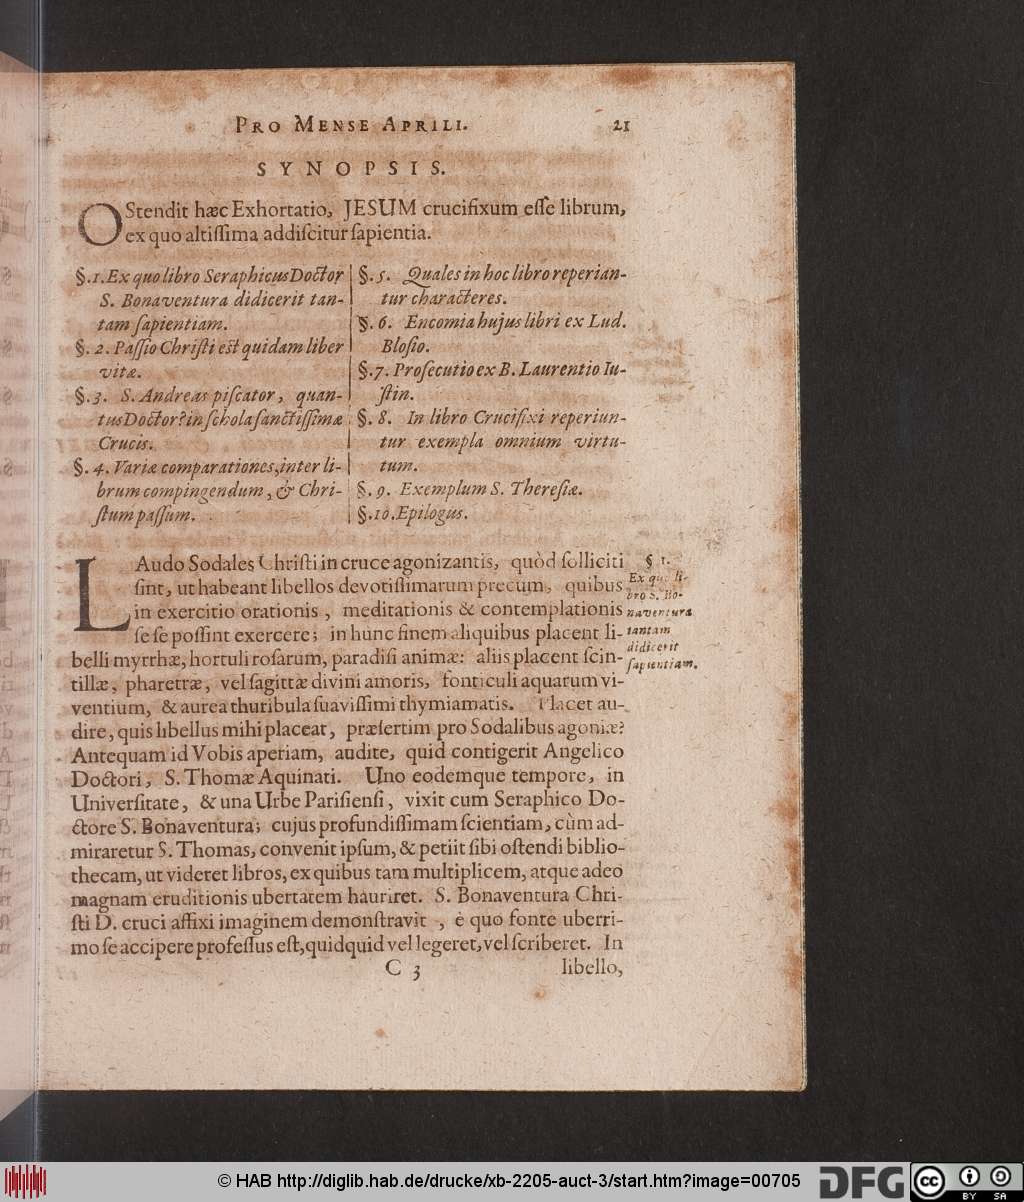 PRO MENSE APRILI. 21
SYNOPSIS.
OStendit hæc Exhortatio, JESUM crucifixum eſſe librum,
ex quo altiſſima addiſcitur ſapientia.
§.1. Ex quo libro Seraphicus Doctor
S. Bonaventura didicerit tan-
tam ſapientiam.
§.2. Paſſio Chriſti est quidam liber
vitæ.
§.3. S. Andreas piſcator, quan-
tus Doctor? in ſchola ſanctiſſimæ
Crucis.
§.4. Variæ comparationes, inter li-
brum compingendum, & Chri-
ſtum paſſum.
§.5. Quales in hoc libro reperian-
tur characteres.
§.6. Encomia hujus libri ex Lud.
Bloſio.
§.7. Proſecutio ex B. Laurentio Iu-
ſtin.
§.8. In libro Crucifixi reperiun-
tur exempla omnium virtu-
tum.
§.9. Exemplum S. Thereſiæ.
§.10. Epilogus.
LAudo Sodales Chriſti in cruce agonizantis, quòd ſolliciti
ſint, ut habeant libellos devotiſſimarum precum, quibus
in exercitio orationis, meditationis & contemplationis
ſe ſe poſſint exercere; in hunc finem aliquibus placent li-
belli myrrhæ, hortuli roſarum, paradiſi animæ: aliis placent ſcin-
tillæ, pharetræ, vel ſagittæ divini amoris, fonticuli aquarum vi-
ventium, & aurea thuribula ſuaviſſimi thymiamatis. Placet au-
dire, quis libellus mihi placeat, præſertim pro Sodalibus agoniæ?
Antequam id Vobis aperiam, audite, quid contigerit Angelico
Doctori, S. Thomæ Aquinati. Uno eodemque tempore, in
Univerſitate, & una Urbe Pariſienſi, vixit cum Seraphico Do-
ctore S. Bonaventura; cujus profundiſſimam ſcientiam, cùm ad-
miraretur S. Thomas, convenit ipſum, & petiit ſibi oſtendi biblio-
thecam, ut videret libros, ex quibus tam multiplicem, atque adeo
magnam eruditionis ubertatem hauriret. S. Bonaventura Chri-
ſti D. cruci affixi imaginem demonſtravit, è quo fonte uberri-
mo ſe accipere profeſſus eſt, quidquid vel legeret, vel ſcriberet. In
§ 1.
Ex quo li-
bro S. Bo-
naventura
tantam
didicerit
ſapientiam.
C 3 libello,
© HAB http://diglib.hab.de/drucke/xb-2205-auct-3/start.htm?image=00705
DFG
cc BY SA